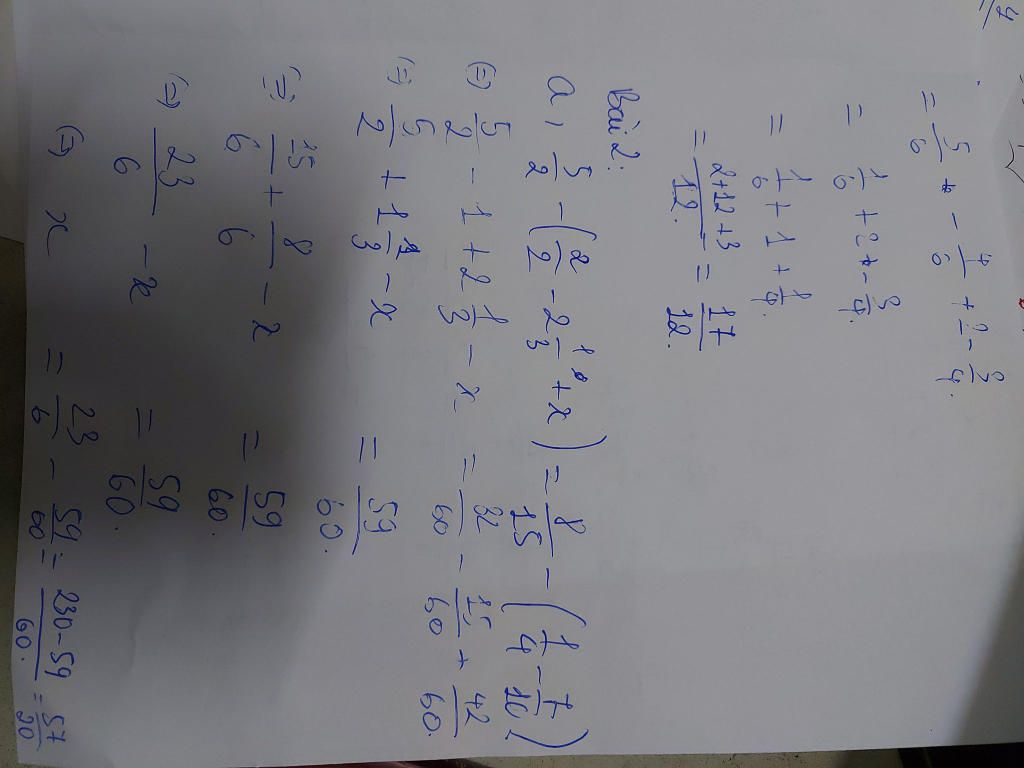 = 5/6 - 4/6 + 2 - 3/4.
= 1/6 + 2 - 3/4.
= 1/6 + 1 + 1/4.
= (2+12+3)/12. = 17/12.
Bài 2:
a, 5/2 - (2/2 - 2 1/3 + x) = 8/15 - (1/4 - 7/10)
(=) 5/2 - 1 + 2 1/3 - x = 32/60 - 15/60 + 42/60.
(=) 5/2 + 1 1/3 - x = 59/60.
(=) 15/6 + 8/6 - x = 59/60.
(=) 23/6 - x = 59/60.
(=) x = 23/6 - 59/60 = (230-59)/60. = 57/20